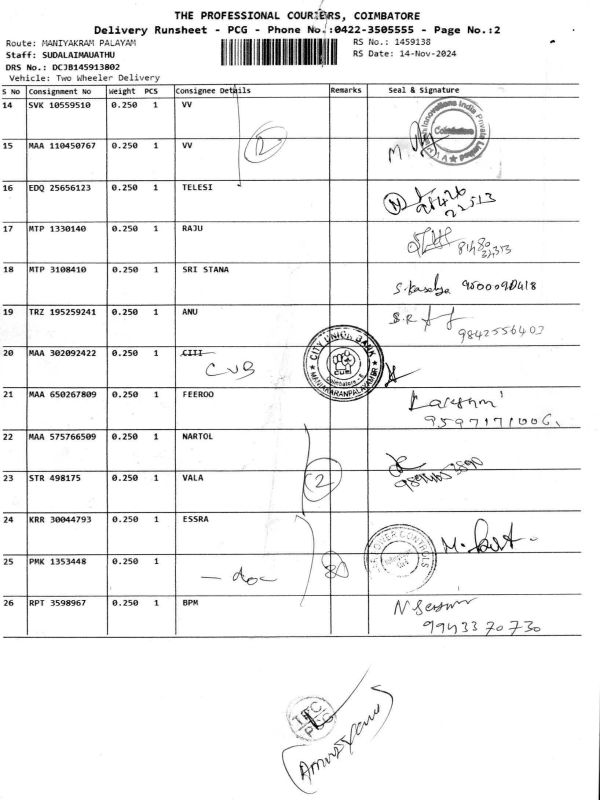 THE PROFESSIONAL COURIERS, COIMBATORE
Delivery Runsheet - PCG - Phone No.:0422-3505555 - Page No.:2
Route: MANIYAKRAM PALAYAM RS No.: 1459138
Staff: SUDALAIMAUATHU RS Date: 14-Nov-2024
DRS No.: DCJB145913802
Vehicle: Two Wheeler Delivery
S No Consignment No Weight PCS Consignee Details Remarks Seal & Signature
14 SVK 10559510 0.250 1 VV
Coimbatore
15 MAA 110450767 0.250 1 VV
16 EDQ 25656123 0.250 1 TELESI
98426
22513
17 MTP 1330140 0.250 1 RAJU
18 MTP 3108410 0.250 1 SRI STANA
19 TRZ 195259241 0.250 1 ANU
9842556403
20 MAA 302092422 0.250 1 CITI
CUB
CITY UNION BANK
CUB
Coimbatore
21 MAA 650267809 0.250 1 FEEROO
9597171006
22 MAA 575766509 0.250 1 NARTOL
23 STR 498175 0.250 1 VALA
2
24 KRR 30044793 0.250 1 ESSRA
25 PMK 1353448 0.250 1
- doc
26 RPT 3598967 0.250 1 BPM
9943370730